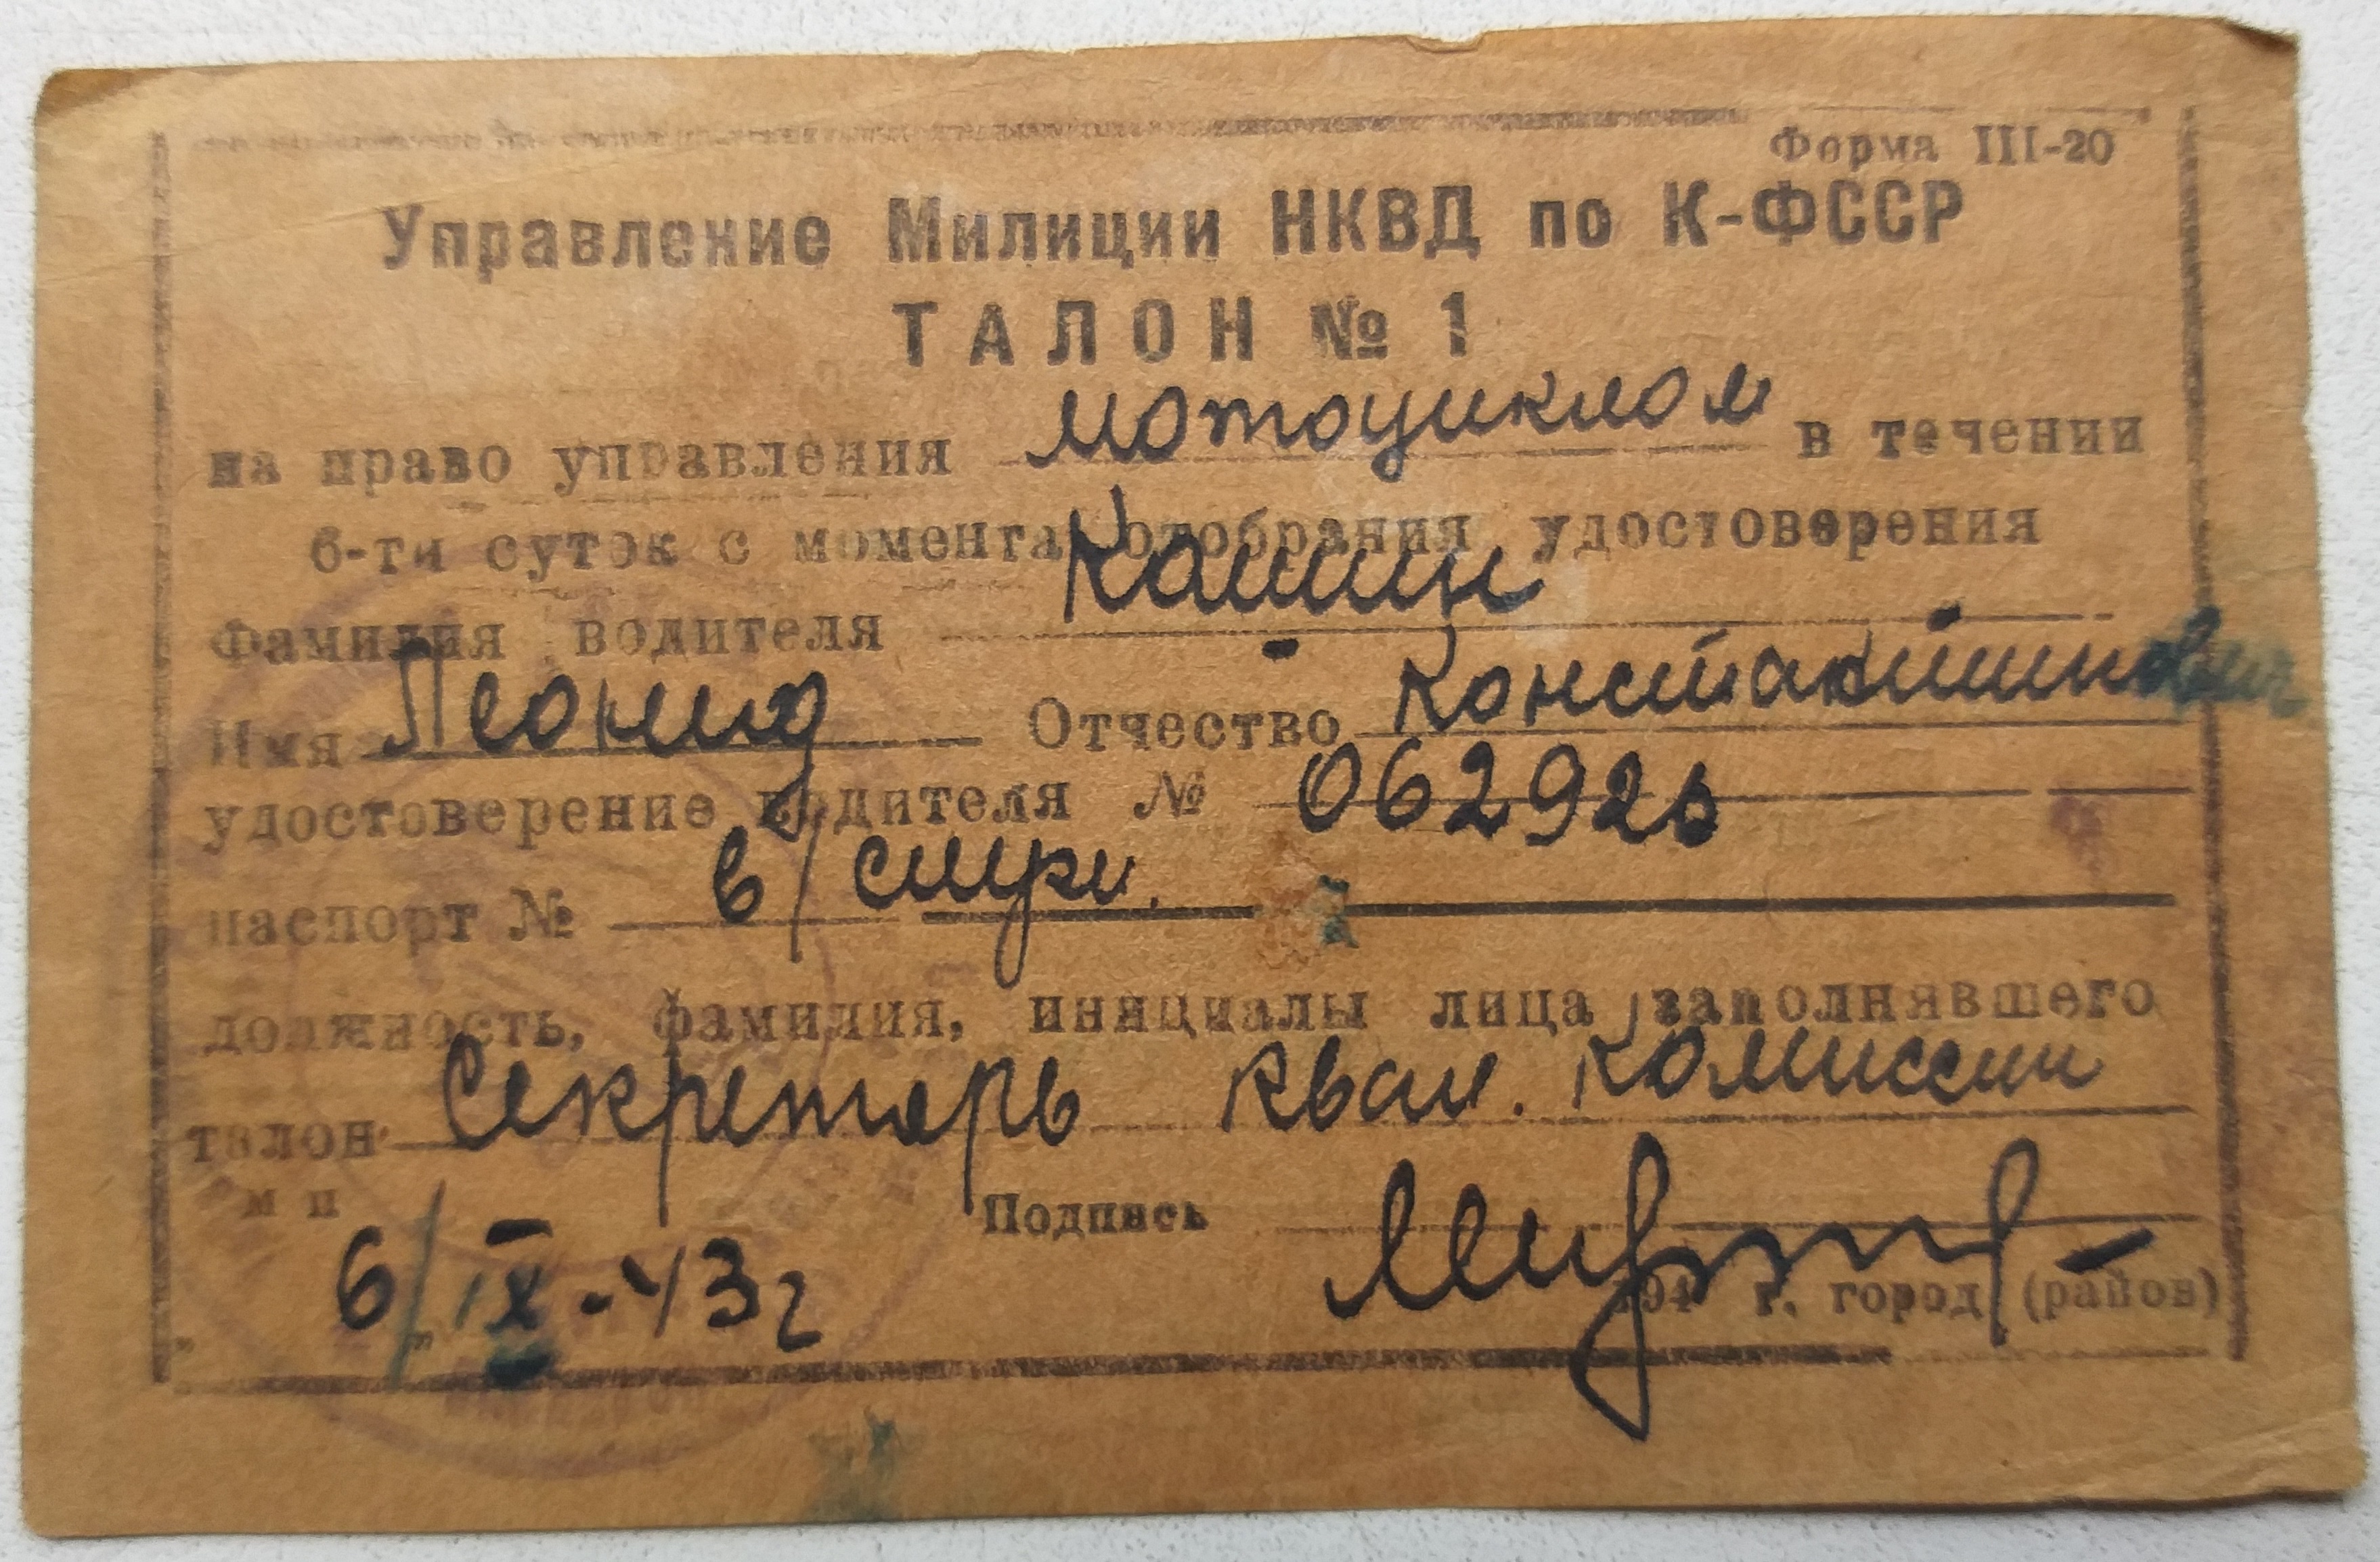 Форма III-20
Управление Милиции НКВД по К-ФССР
ТАЛОН № 1
на право управления мотоциклом в течении
6-ти суток с момента отобрания удостоверения
Фамилия водителя Кашин
Имя Леонид Отчество Константинович
удостоверение водителя № 062926
паспорт № в/служ.
должность, фамилия, инициалы лица заполнявшего
талон Секретарь Квал. Комиссии
м п Подпись
6/IX-43г 194 г. город (район)